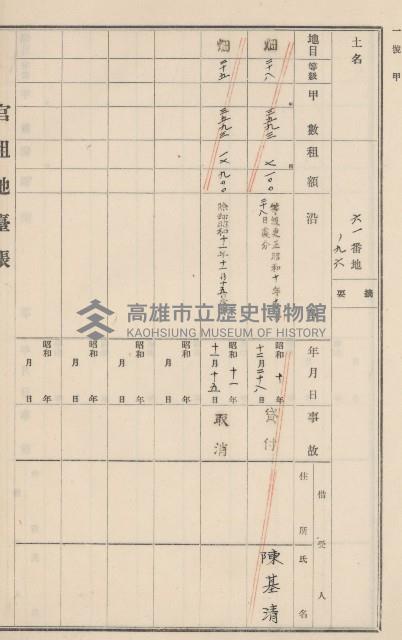 一號甲
土名
六一番地
ノ九六
摘要
地目
等級
甲數
租額
沿
年月日
事故
借受人
住所
氏名
畑
二十八
三五九三
一〇〇
等級更正昭和十年
二十八日處分
昭和十年
十二月二十八日
貸付
陳基清
畑
二十五
三五九三
昭和十一年
十一月十五日
取消
昭和年
月日
昭和年
月日
昭和年
月日
昭和年
月日
官租地臺帳
高雄市立歷史博物館
KAOHSIUNG MUSEUM OF HISTORY